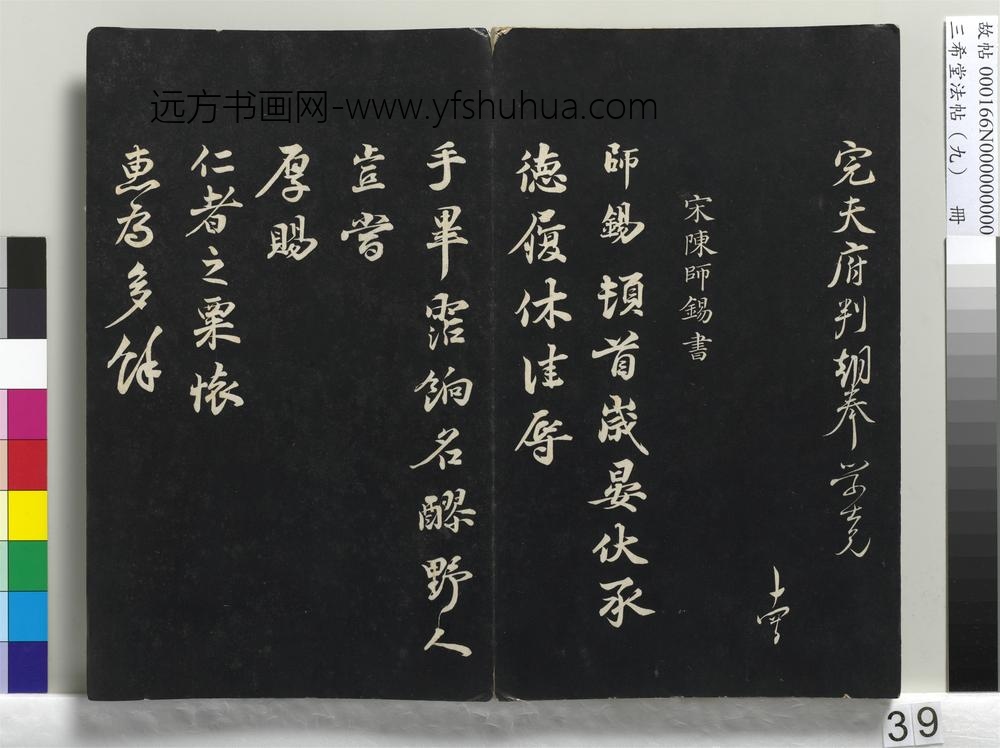 完夫府判朝奉学士兄
宋陳師錫書
師錫頓首歲晏伏承
德履休佳辱
手畢寵餉名醪野人
豈嘗
厚賜
仁者之粟懷
惠為多餘
远方书画网-www.yfshuhua.com
故帖 000166N000000000
三希堂法帖（九） 冊
39